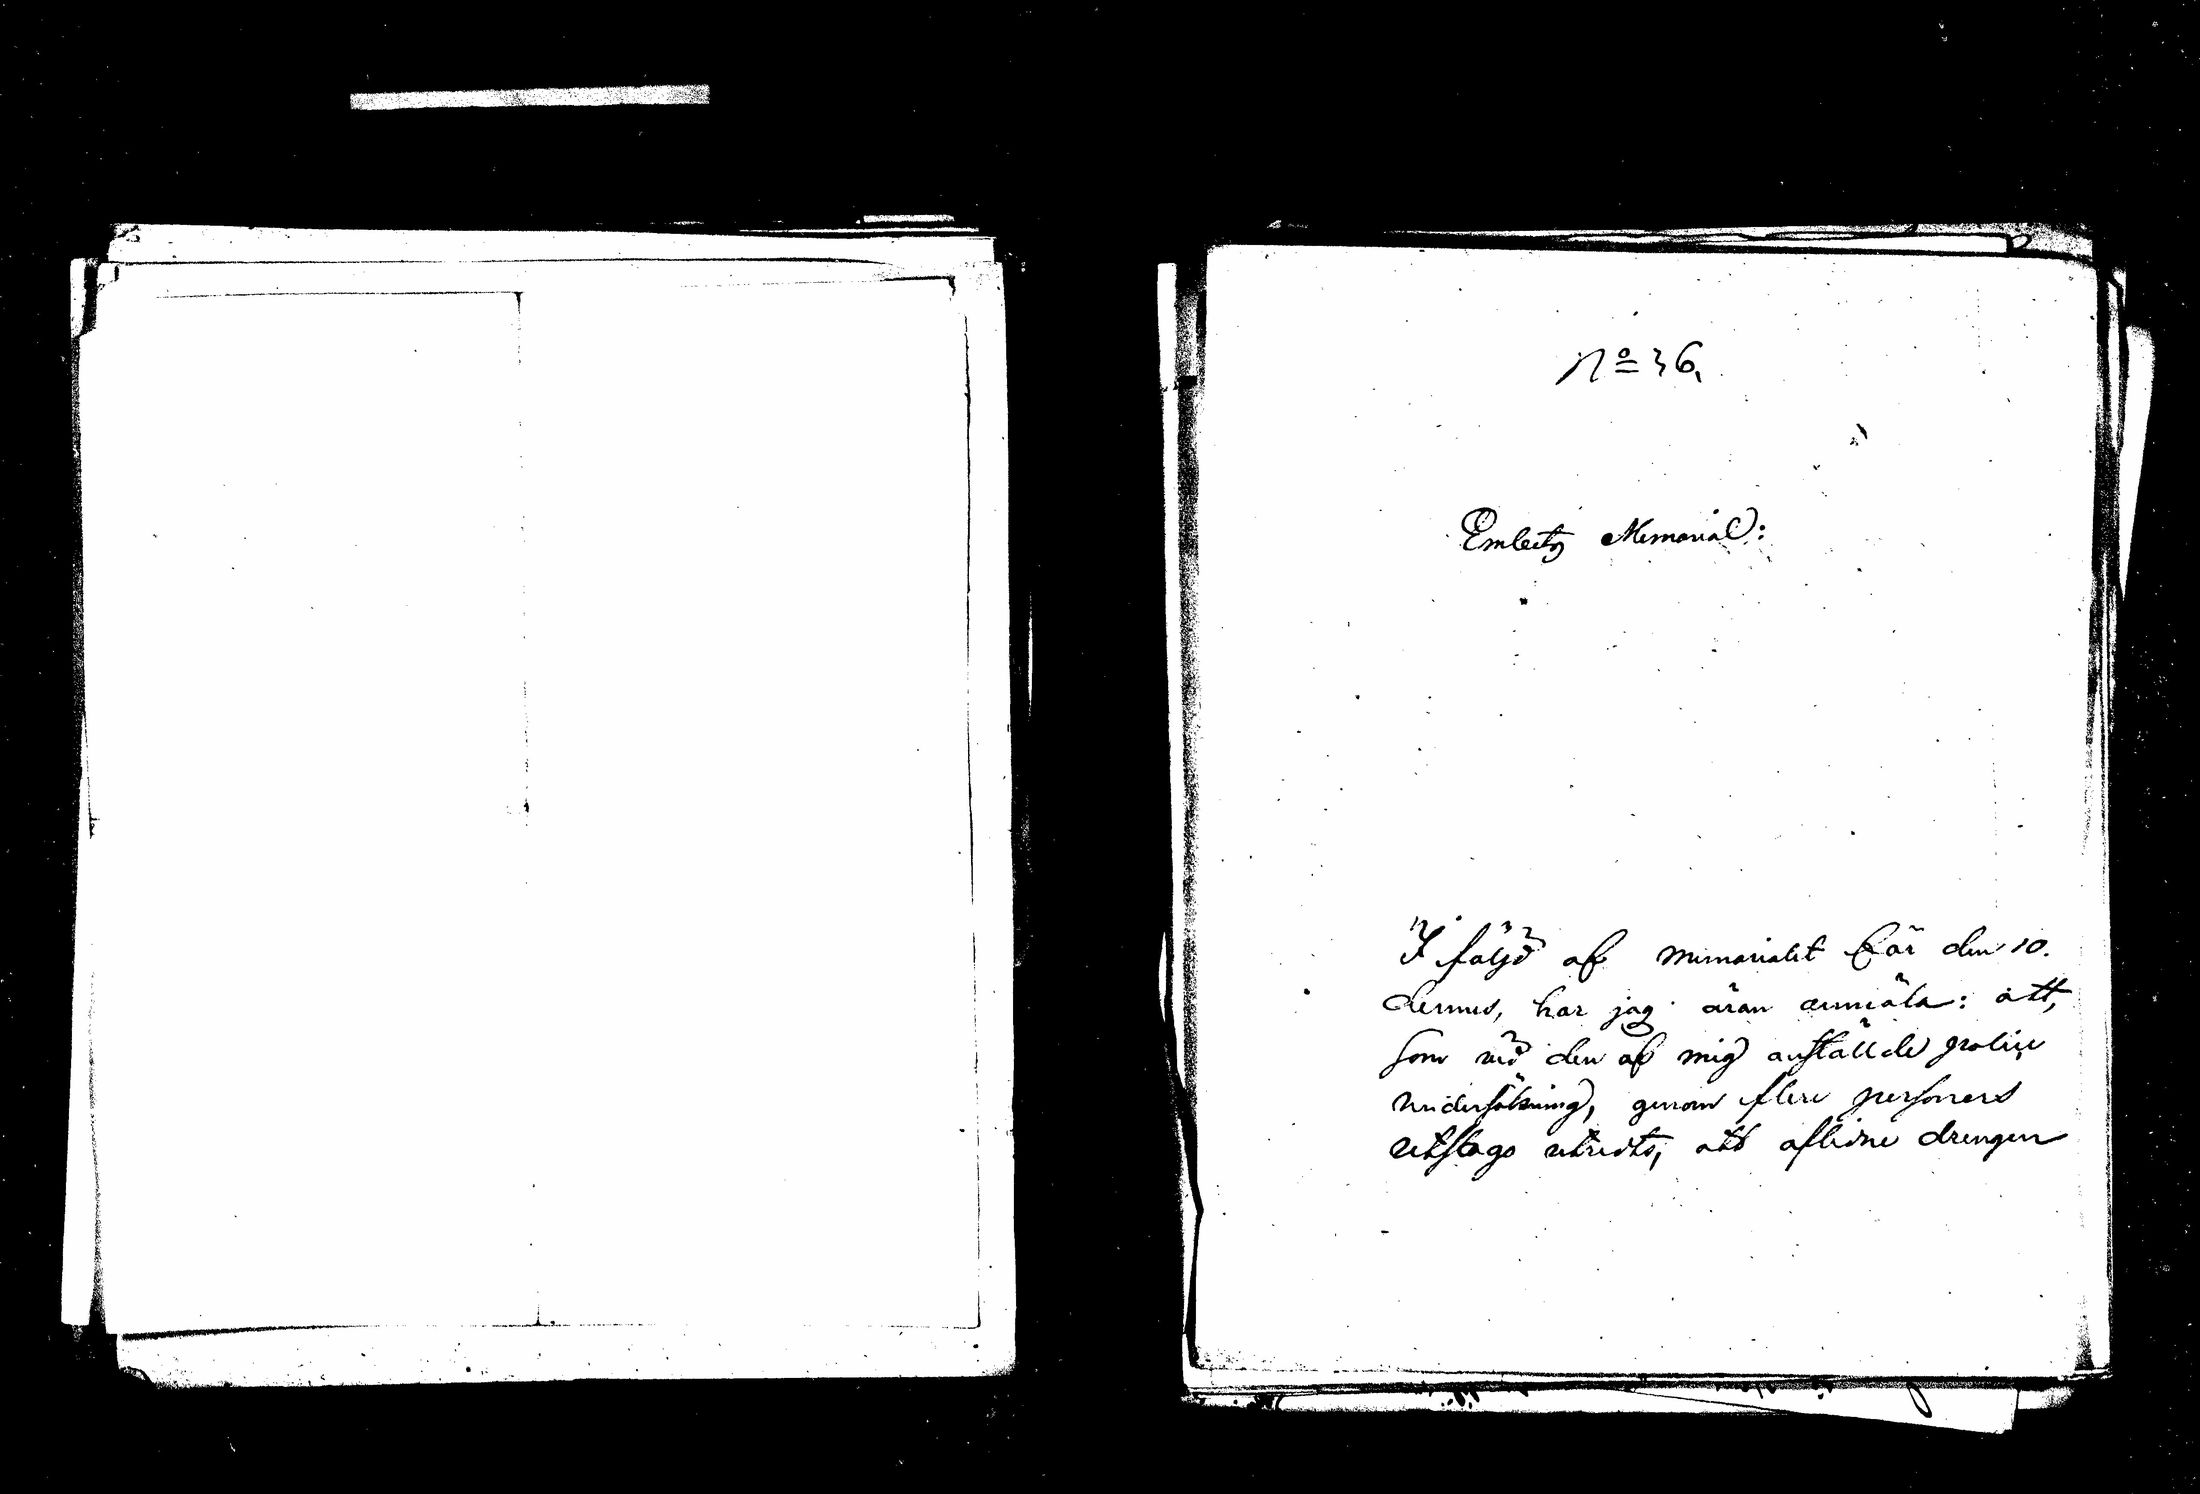 No 36,
Embets Memorial:
I följd af memorialet från den 10.
dennes, har jag äran anmäla: att,
som vid den af mig anställde polise
undersökning, genom flere personers
utsago utredts, att aflidne drengen